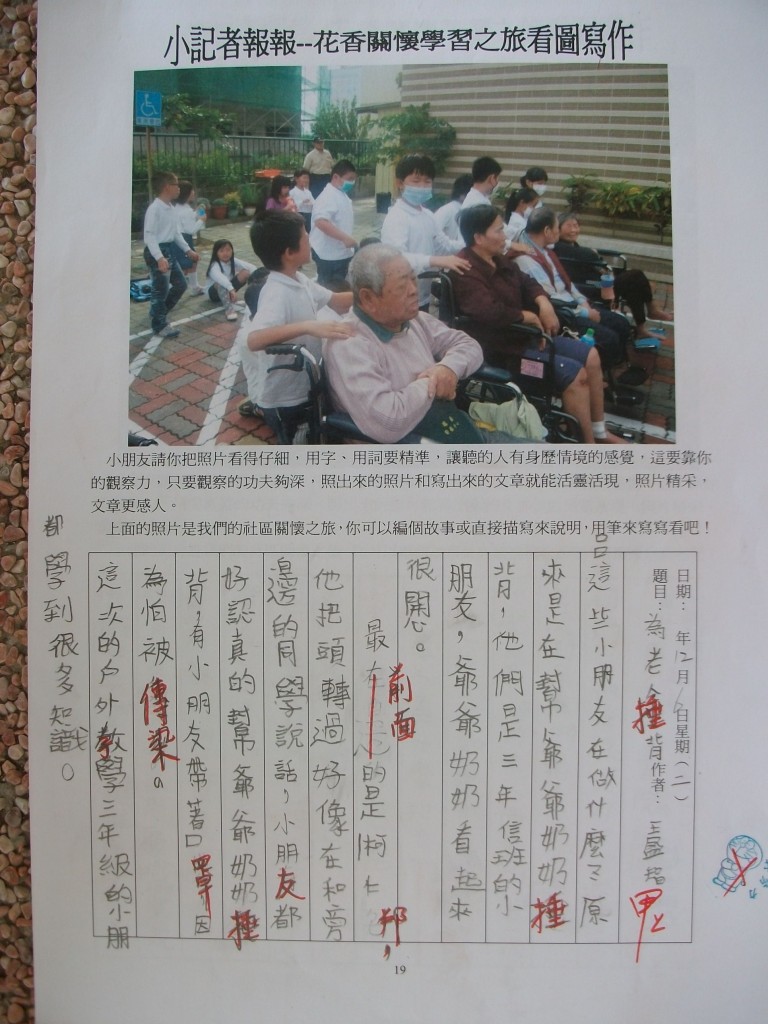 小記者報報--花香關懷學習之旅看圖寫作
小朋友請你把照片看得仔細，用字、用詞要精準，讓聽的人有身歷情境的感覺，這要靠你
的觀察力，只要觀察的功夫夠深，照出來的照片和寫出來的文章就能活靈活現，照片精采，
文章更感人。
上面的照片是我們的社區關懷之旅，你可以編個故事或直接描寫來說明，用筆來寫寫看吧！
日期： 年12月 日星期（二）
題目：為老人捶背作者：
甲上
這些小朋友在做什麼？原
來是在幫爺爺奶奶捶
背，他們是三年信班的小
朋友，爺爺奶奶看起來
很開心。
最前面的是 邦，
他把頭轉過好像在和旁
邊的同學說話，小朋友都
好認真的幫爺爺奶奶捶
背，有小朋友帶著口罩因
為怕被傳染。
這次的戶外教學三年級的小朋
都學到很多知識。
19